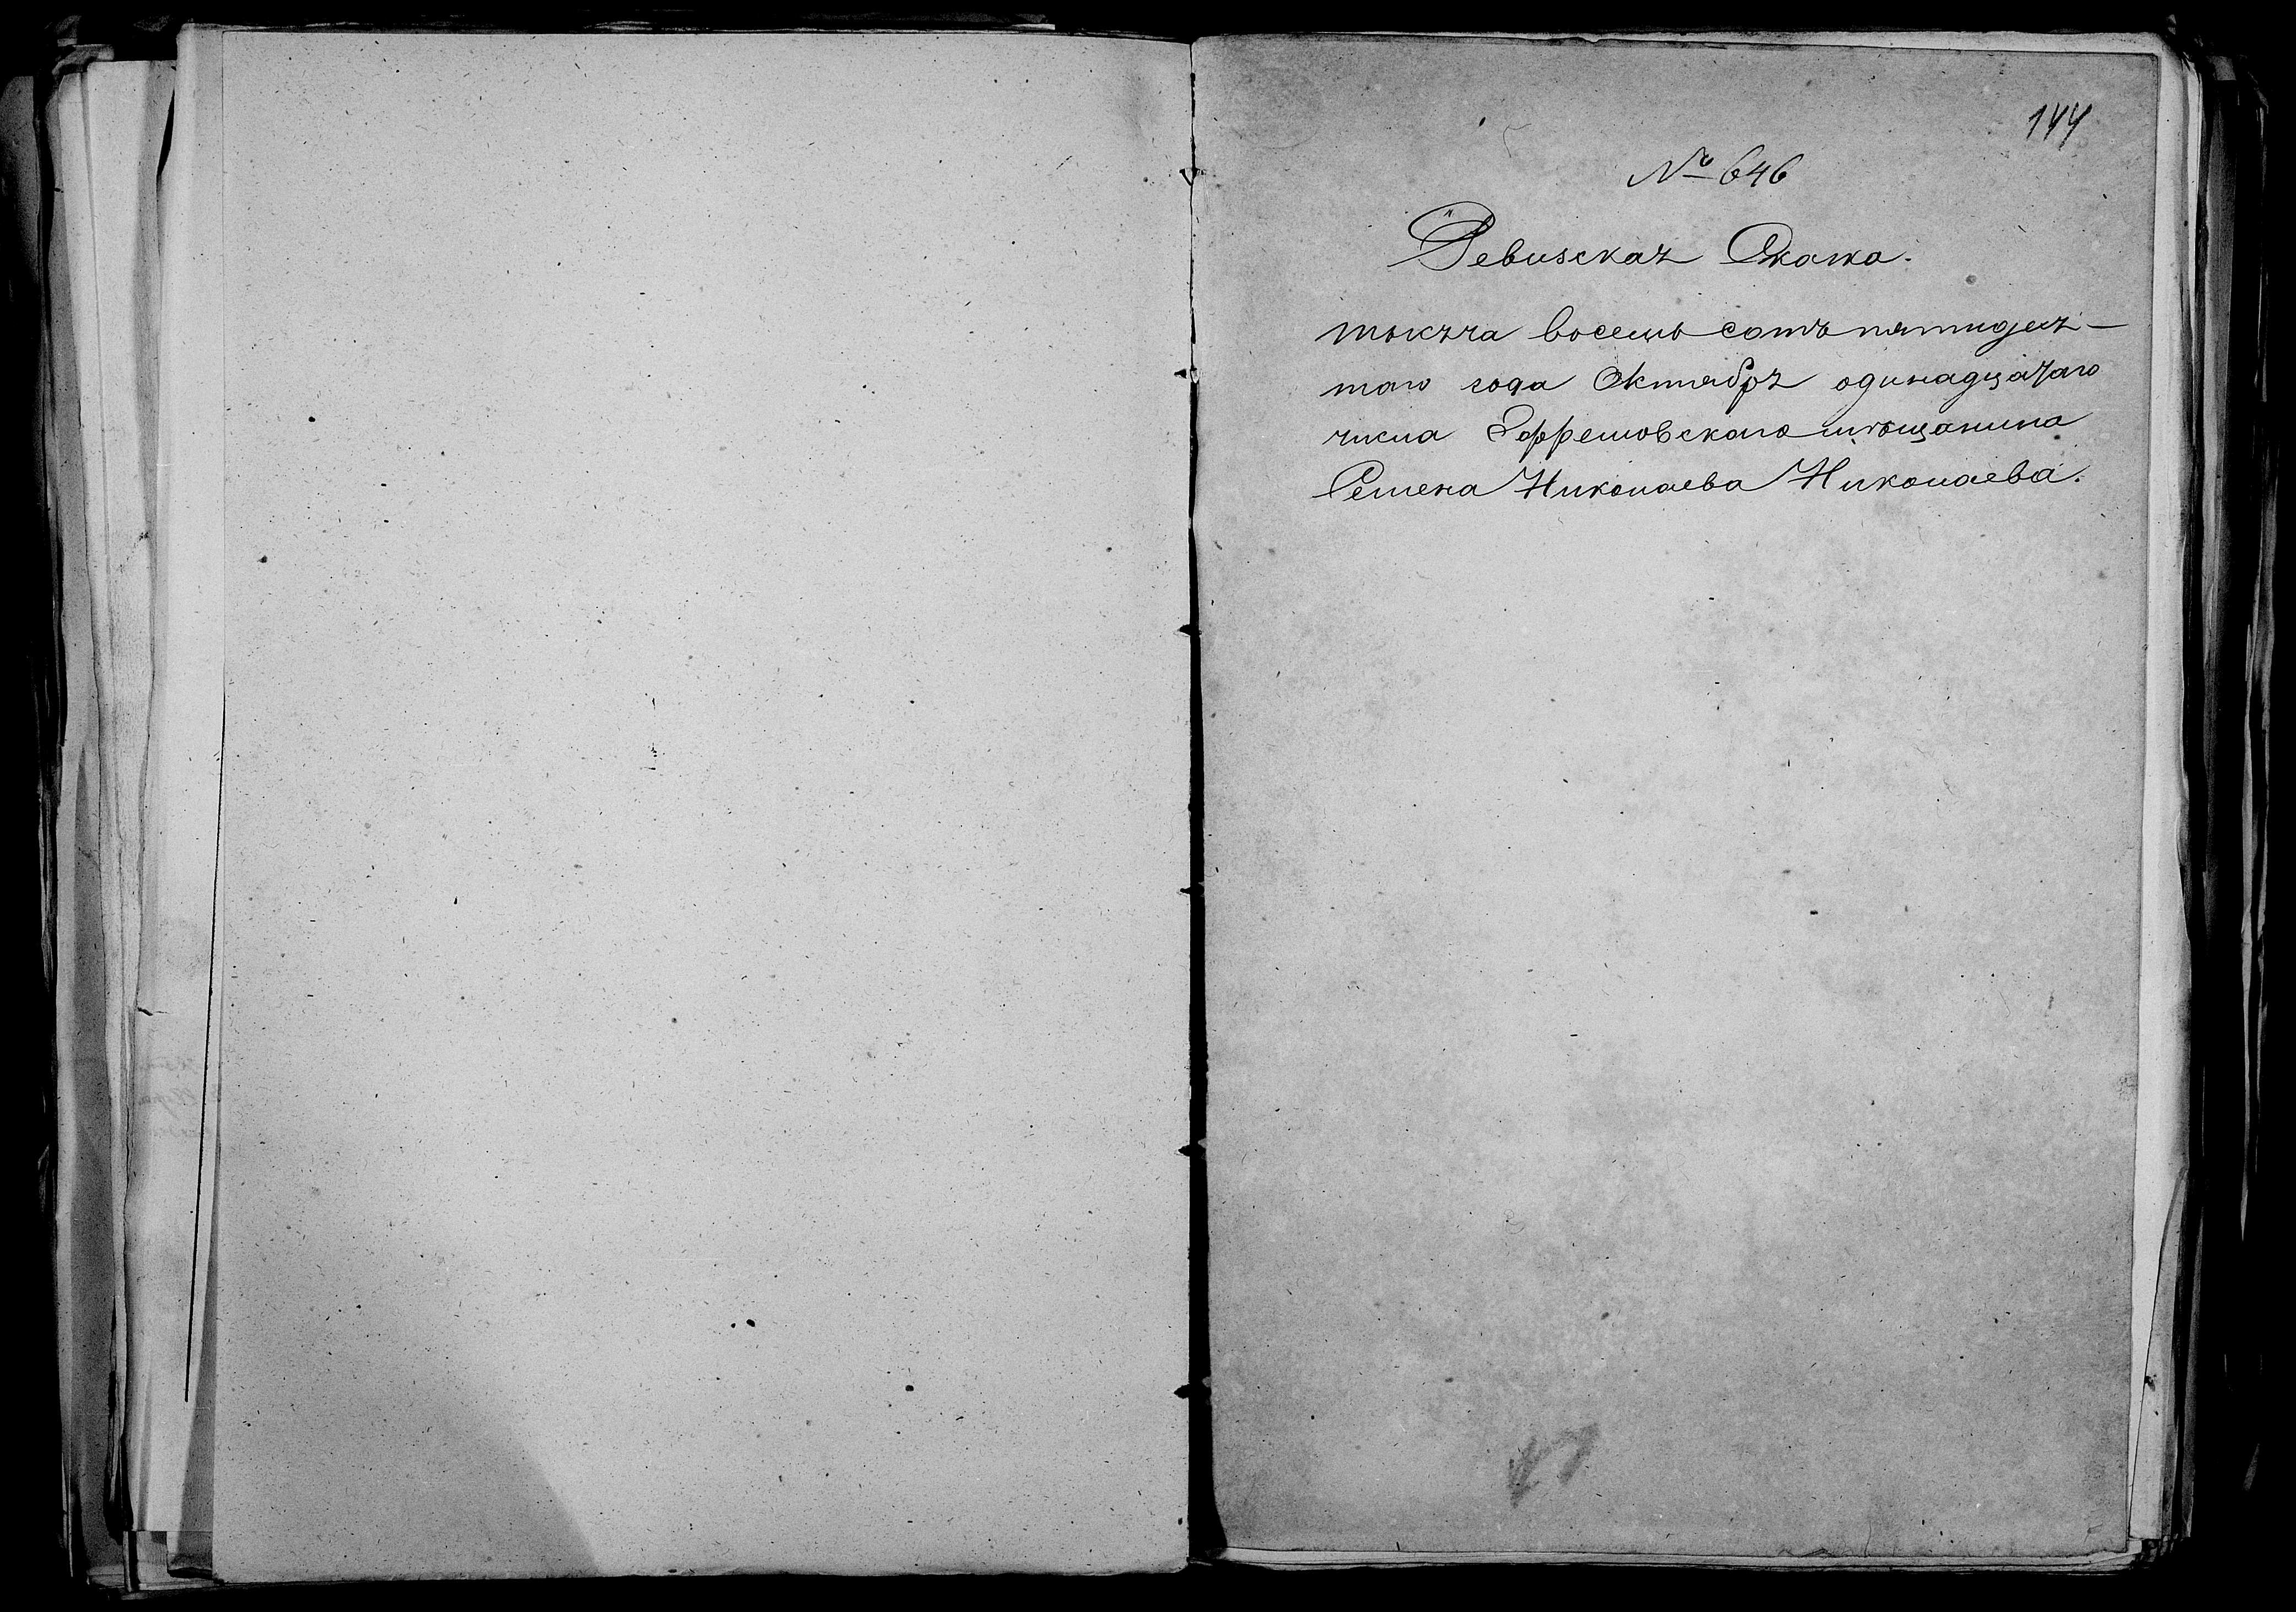 144
№ 646
Ревизская Скаска.
тысяча восемь сотъ пятидеся-
таго года Октября одинадцатаго
числа Ефремовскаго мѣщанина
Семена Николаева Николаева.